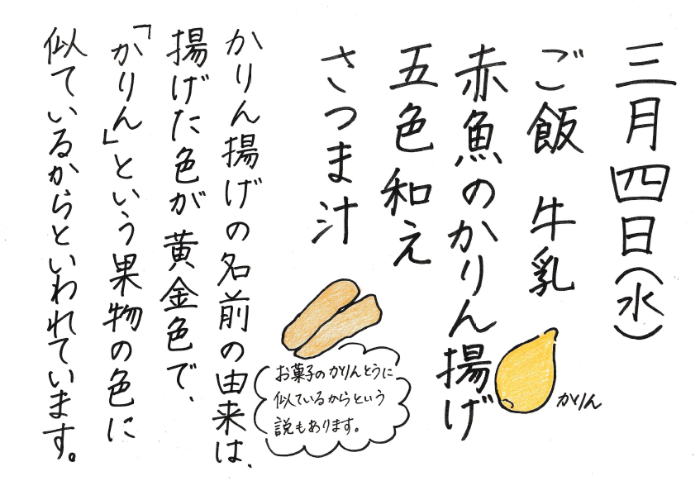 三月四日(水)
ご飯 牛乳
赤魚のかりん揚げ
五色和え
さつま汁
かりん
お菓子のかりんとうに
似ているからという
説もあります。
かりん揚げの名前の由来は、
揚げた色が黄金色で、
「かりん」という果物の色に
似ているからといわれています。